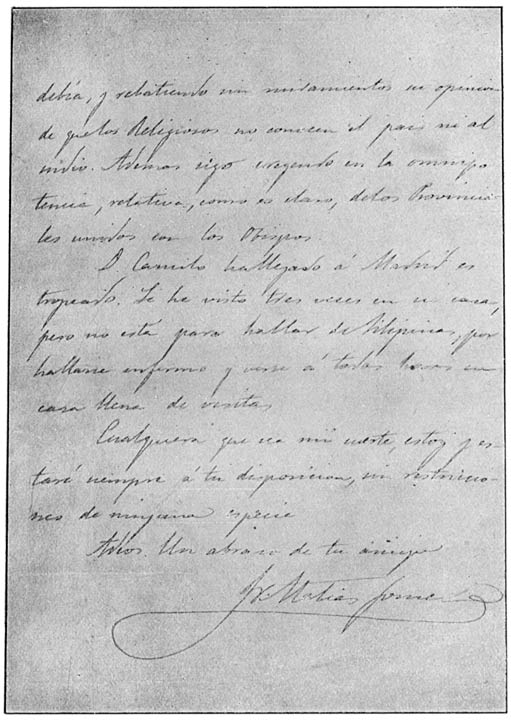 debía, y rebatiendo sin miramientos su opinion
de que los Religiosos no conocen el pais ni al
indio. Ademas sigo creyendo en la omnipo
tencia, relativa, como es claro, de los Provincia
les unidos con los Obispos.
D. Camilo ha llegado á Madrid es
tropeado. Le he visto tres veces en su casa,
pero no está para hablar de Filipinas, por
hallarse enfermo y verse á todas horas su
casa llena de visitas
Cualquiera que sea mi suerte, estoy y es
taré siempre á tu disposicion, sin restriccio-
nes de ninguna especie
Adios. Un abrazo de tu amigo
Matias